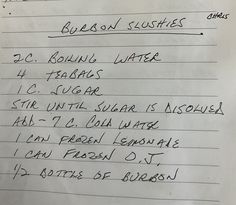 CHRIS
BURBON SLUSHIES
2 C. BOILING WATER
4 TEABAGS
1 C. SUGAR
STIR UNTIL SUGAR IS DISOLVED
ADD - 7 C. COLD WATER
1 CAN FROZEN LEMONADE
1 CAN FROZEN O.J.
1/2 BOTTLE OF BURBON